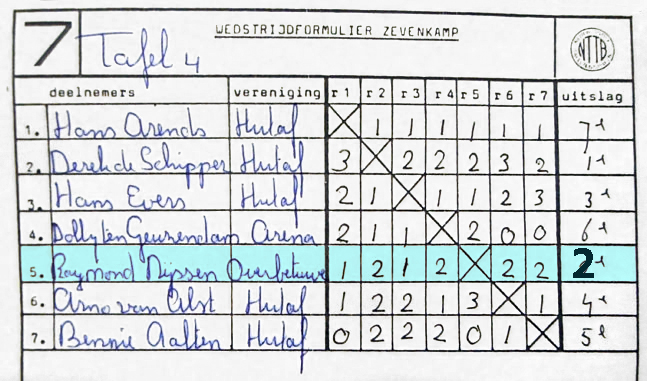 7 WEDSTRIJDFORMULIER ZEVENKAMP NTTB
Tafel 4
deelnemers vereniging r 1 r 2 r 3 r 4 r 5 r 6 r 7 uitslag
1. Hans Arends Hutaf X 1 1 1 1 1 1 7e
2. Derek de Schipper Hutaf 3 X 2 2 2 3 2 1e
3. Hans Evers Hutaf 2 1 X 1 1 2 3 3e
4. Dolly ten Geusendam Arena 2 1 1 X 2 0 0 6e
5. Raymond Nijssen Overbetuwe 1 2 1 2 X 2 2 2e
6. Arno van Alst Hutaf 1 2 2 1 3 X 1 4e
7. Bennie Aalten Hutaf 0 2 2 2 0 1 X 5e